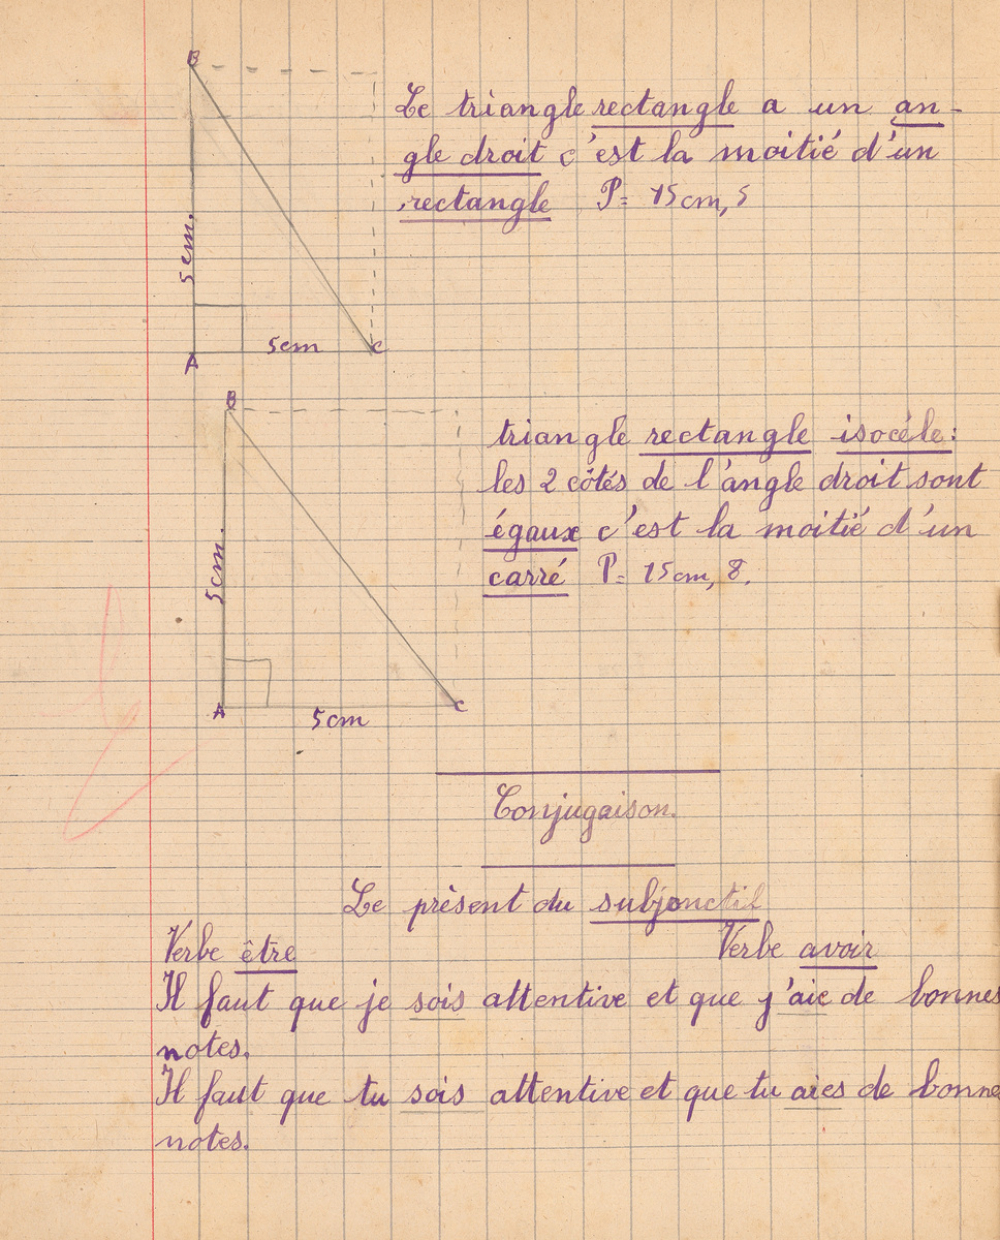 B
Le triangle rectangle a un an-
gle droit c'est la moitié d'un
rectangle P= 15cm,5
5cm.
5cm
A
C
B
triangle rectangle isocèle:
les 2 côtés de l'angle droit sont
égaux c'est la moitié d'un
carré P= 15cm,8.
5cm.
A
C
5cm
Conjugaison.
Le présent du subjonctif
Verbe être Verbe avoir
Il faut que je sois attentive et que j'aie de bonnes
notes.
Il faut que tu sois attentive et que tu aies de bonne
notes.